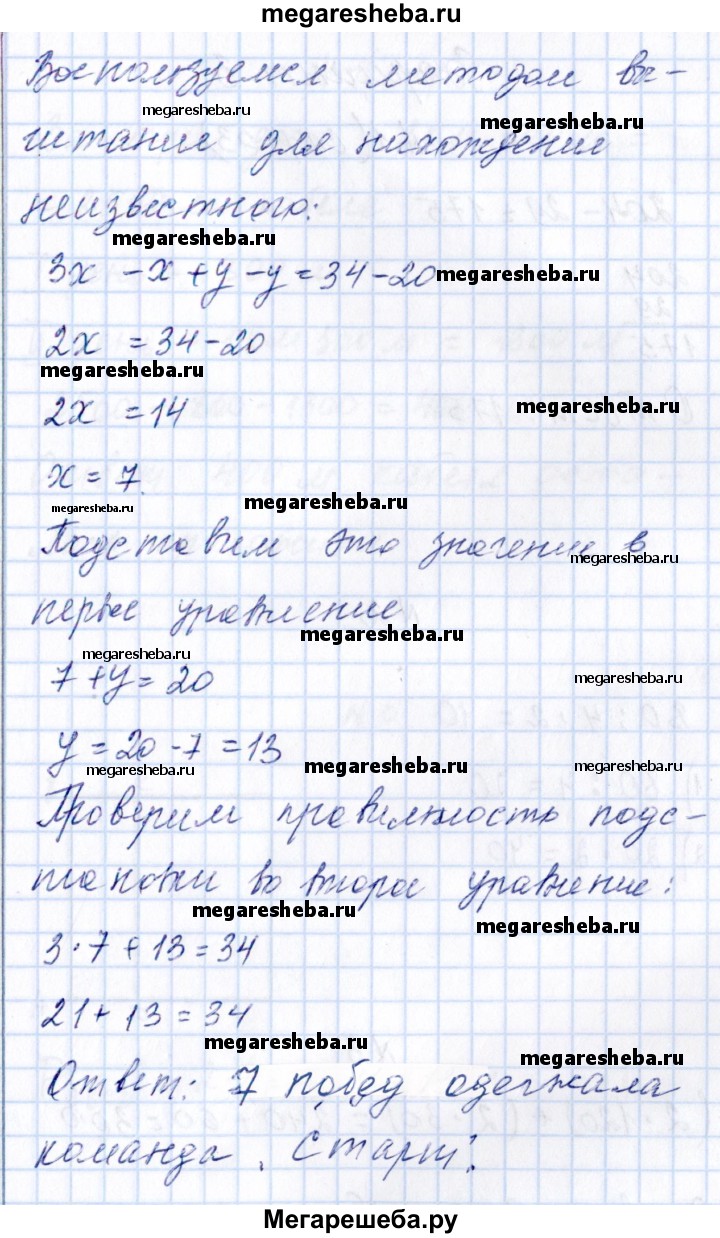 megaresheba.ru
Воспользуемся методом вы-
megaresheba.ru
megaresheba.ru
читание для нахождение
неизвестного:
megaresheba.ru
3x - x + y - y = 34 - 20
megaresheba.ru
2x = 34 - 20
megaresheba.ru
2x = 14
megaresheba.ru
x = 7.
megaresheba.ru
megaresheba.ru
Подставим это значение в
megaresheba.ru
первое уравнение
megaresheba.ru
megaresheba.ru
7 + y = 20
megaresheba.ru
y = 20 - 7 = 13
megaresheba.ru
megaresheba.ru
megaresheba.ru
Проверим правильность подс-
тановки во второе уравнение:
megaresheba.ru
megaresheba.ru
3 · 7 + 13 = 34
21 + 13 = 34
megaresheba.ru
megaresheba.ru
Ответ: 7 побед одержала
команда "Старт".
Мегарешеба.ру